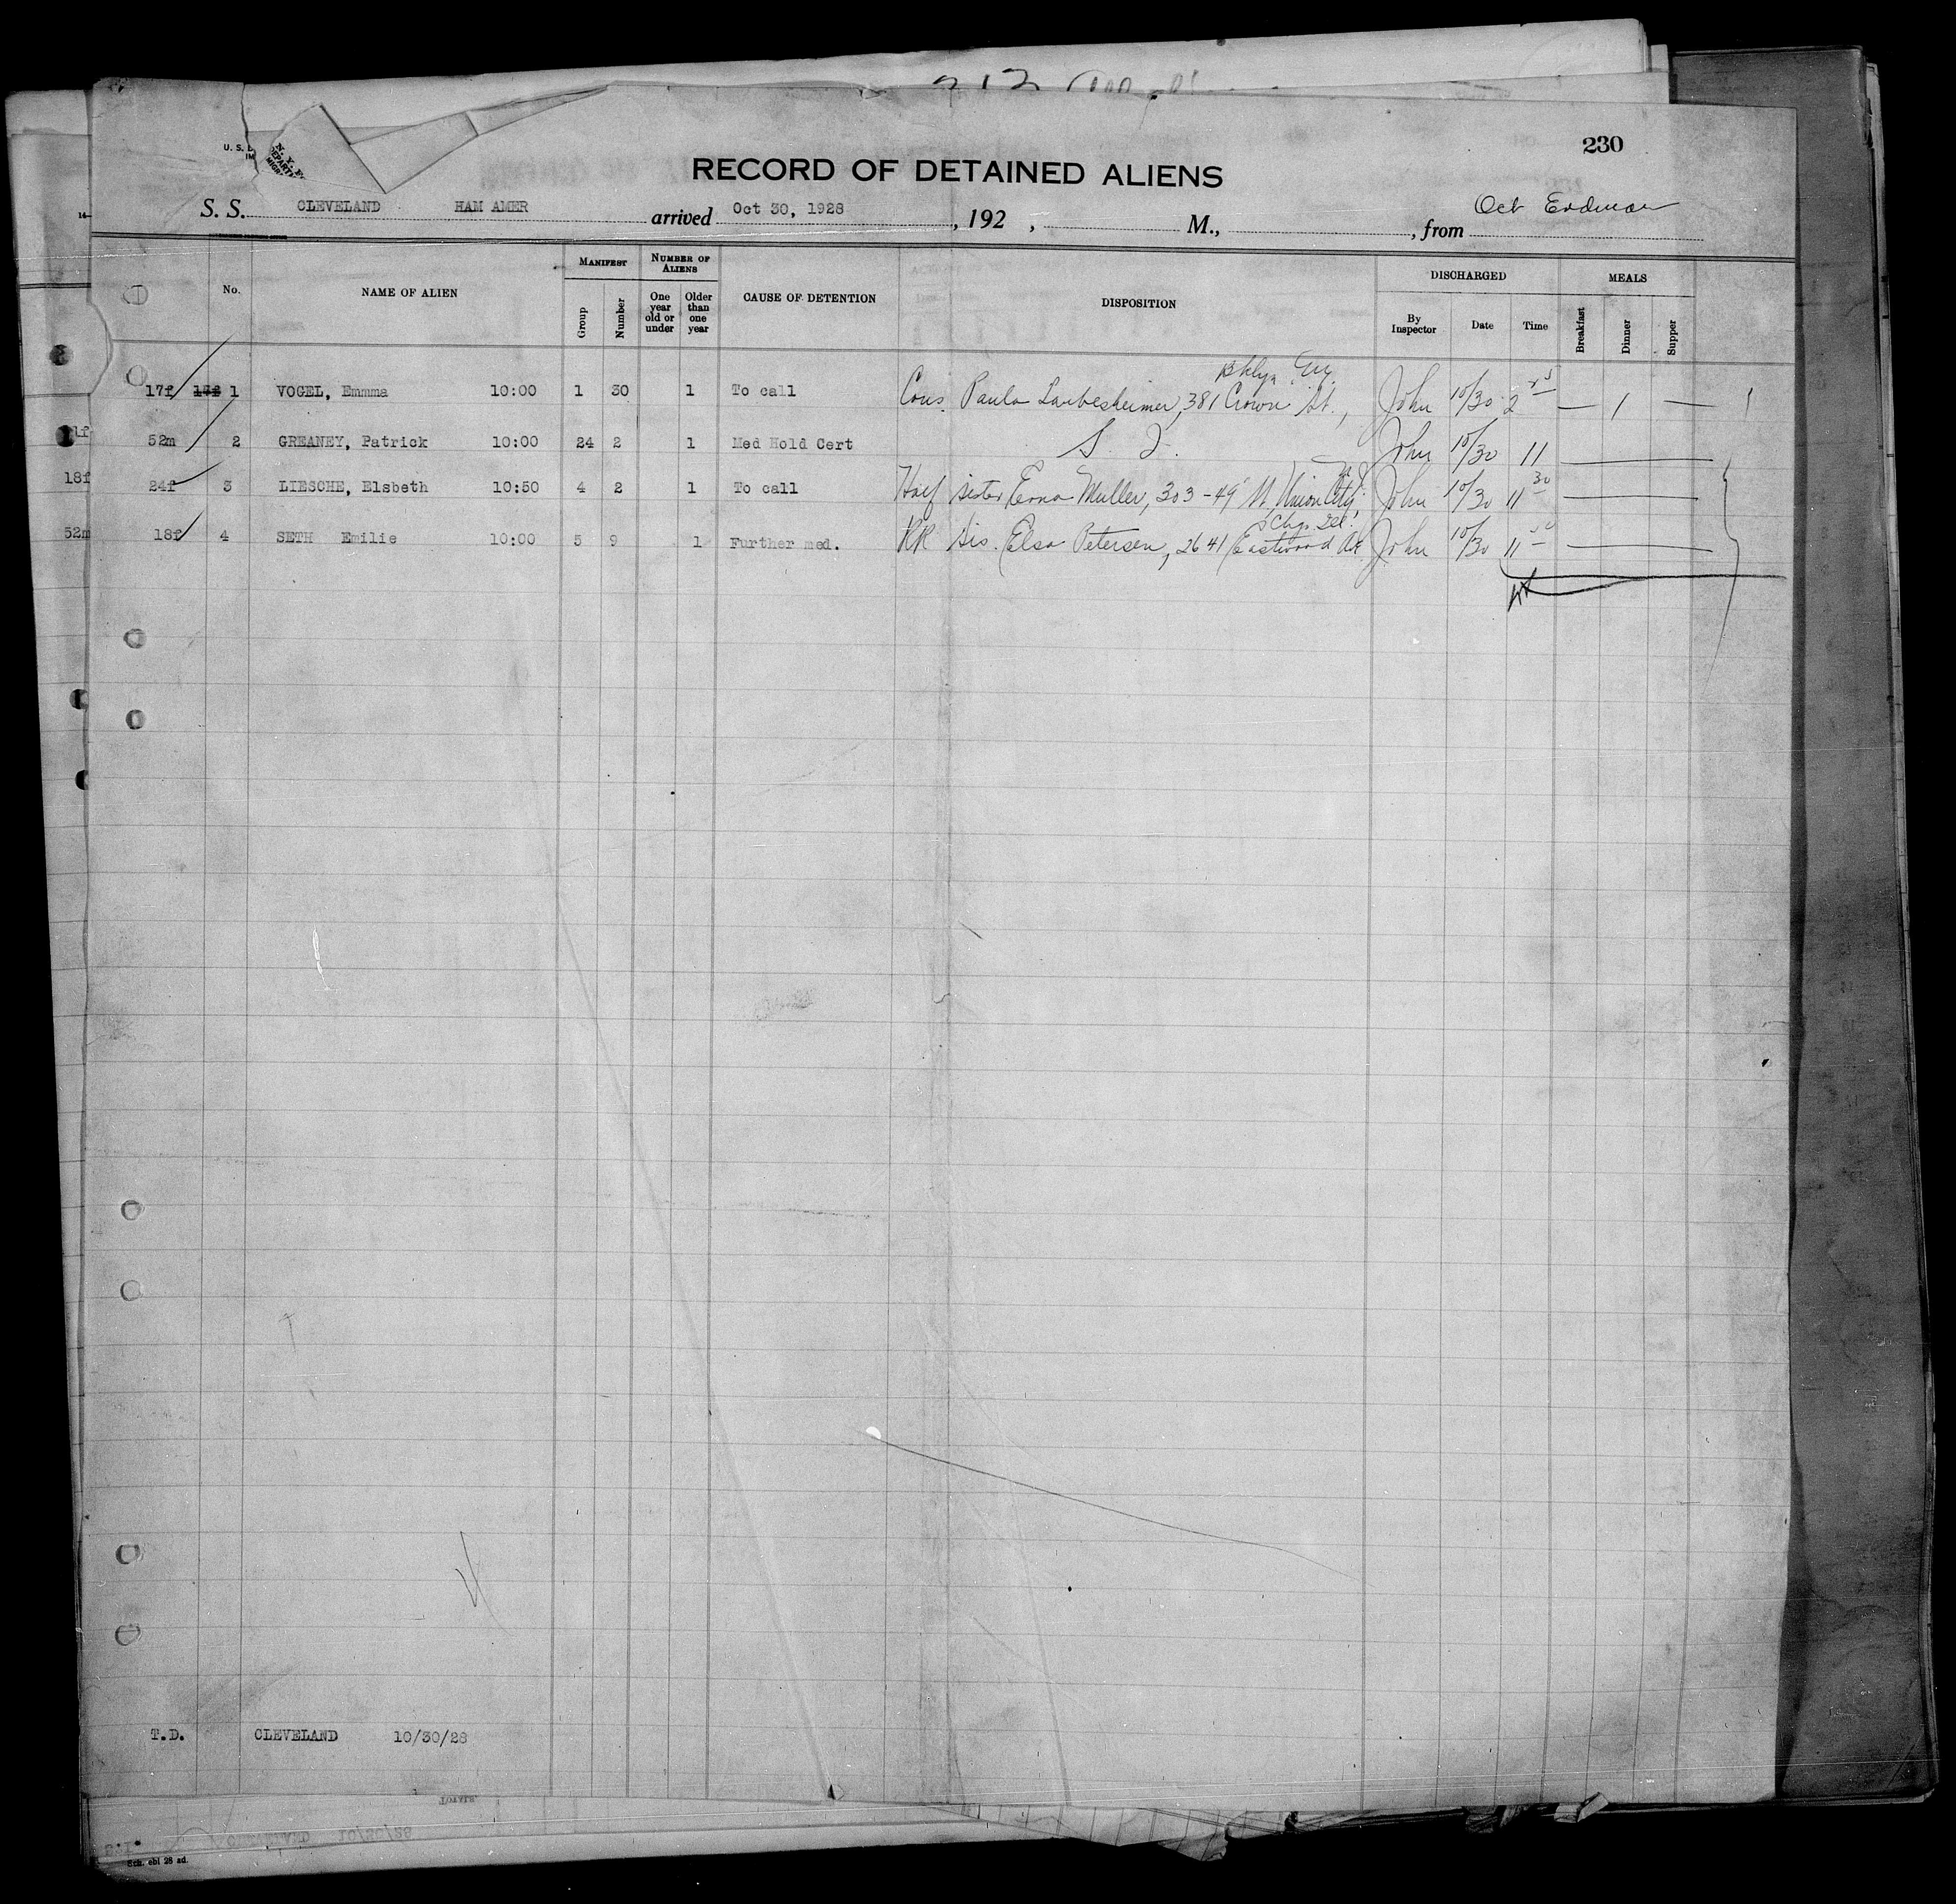 230
U. S. D
IM
N. Y.
DEPART
MIGR
RECORD OF DETAINED ALIENS
S. S. CLEVELAND HAM AMER arrived Oct 30, 1928, 192 , M., , from
No. NAME OF ALIEN MANIFEST Group Number NUMBER OF ALIENS One year old or under Older than one year CAUSE OF DETENTION DISPOSITION DISCHARGED By Inspector Date Time MEALS Breakfast Dinner Supper
Bklyn
17f 1 VOGEL, Emmma 10:00 1 30 1 To call Cous. Paula 381 Crown St., John 10/30 2 — 1 — 1
52m 2 GREANEY, Patrick 10:00 24 2 1 Med Hold Cert S. I. John 10/30 11
18f 24f 3 LIESCHE, Elsbeth 10:50 4 2 1 To call Half sister Erna Muller, 303-49" St, Union City, N.J. John 10/30 11 30
52m 18f 4 SETH Emilie 10:00 5 9 1 Further med. RR Sis. Elsa Petersen, 2641 Eastwood Av John 10/30 11
T.D. CLEVELAND 10/30/28
CLEVELAND 10/30/28